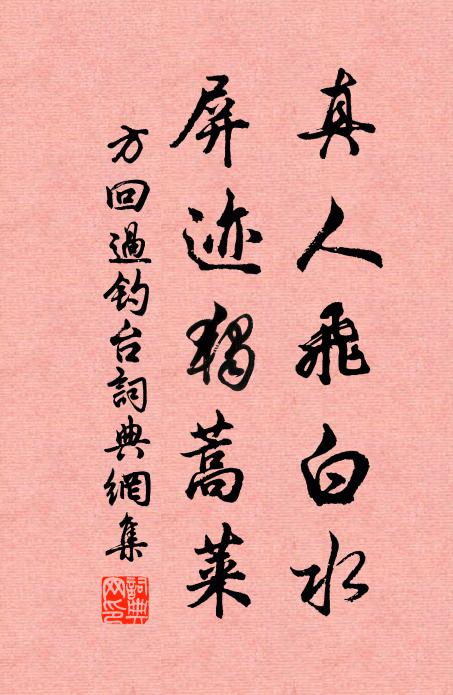 真人飛白水
屏迹獨蒿萊
方回過釣台詞典網集
詞典网印